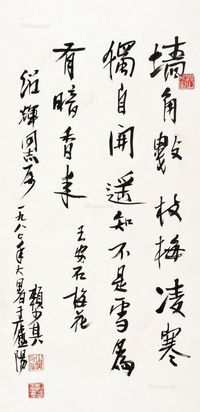 墙角数枝梅凌寒
独自开遥知不是雪为
有暗香来
王安石梅花
绍辉同志属
一九八〇年大暑于庐阳
赖少其